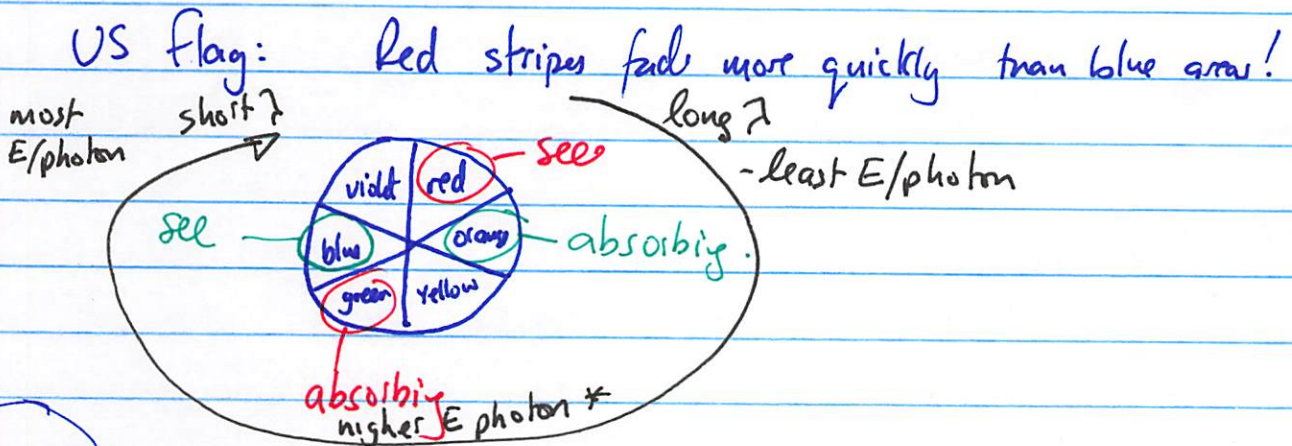 US flag: Red stripes fade more quickly than blue areas!
most E/photon
short λ
long λ
- least E/photon
violet
red
see
see
blue
orange
absorbing.
green
yellow
absorbing
higher E photon *